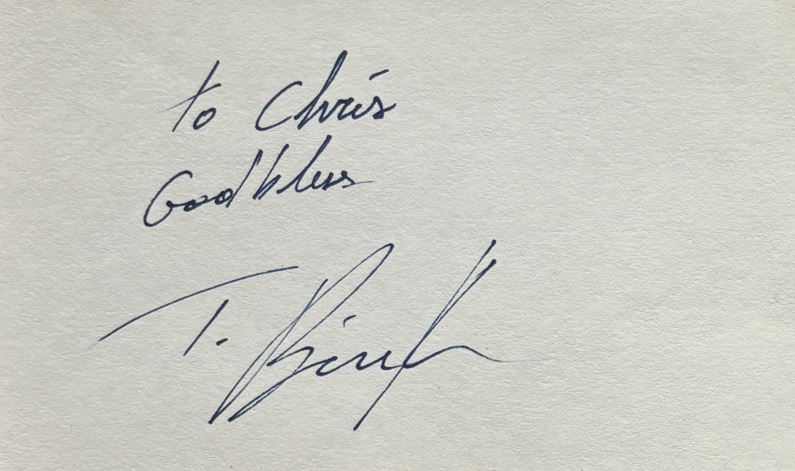 to Chris
God bless
T.